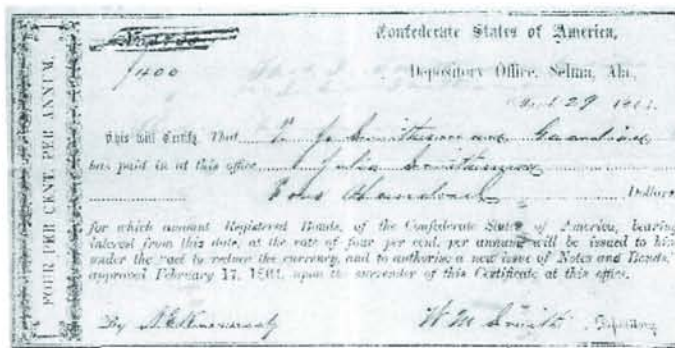 FOUR PER CENT. PER ANNUM.
Confederate States of America,
$400
Depository Office, Selma, Ala.,
29 186
This will Certify, That J. Smitherman Guardian
has paid in at this office Julia Smitherman
Four Hundred Dollars
for which amount Registered Bonds, of the Confederate States of America, bearing
interest from this date, at the rate of four per cent. per annum will be issued to him
under the "act to reduce the currency, and to authorise a new issue of Notes and Bonds,"
approved February 17, 1864, upon the surrender of this Certificate at this office.
By W M Smith Depositary